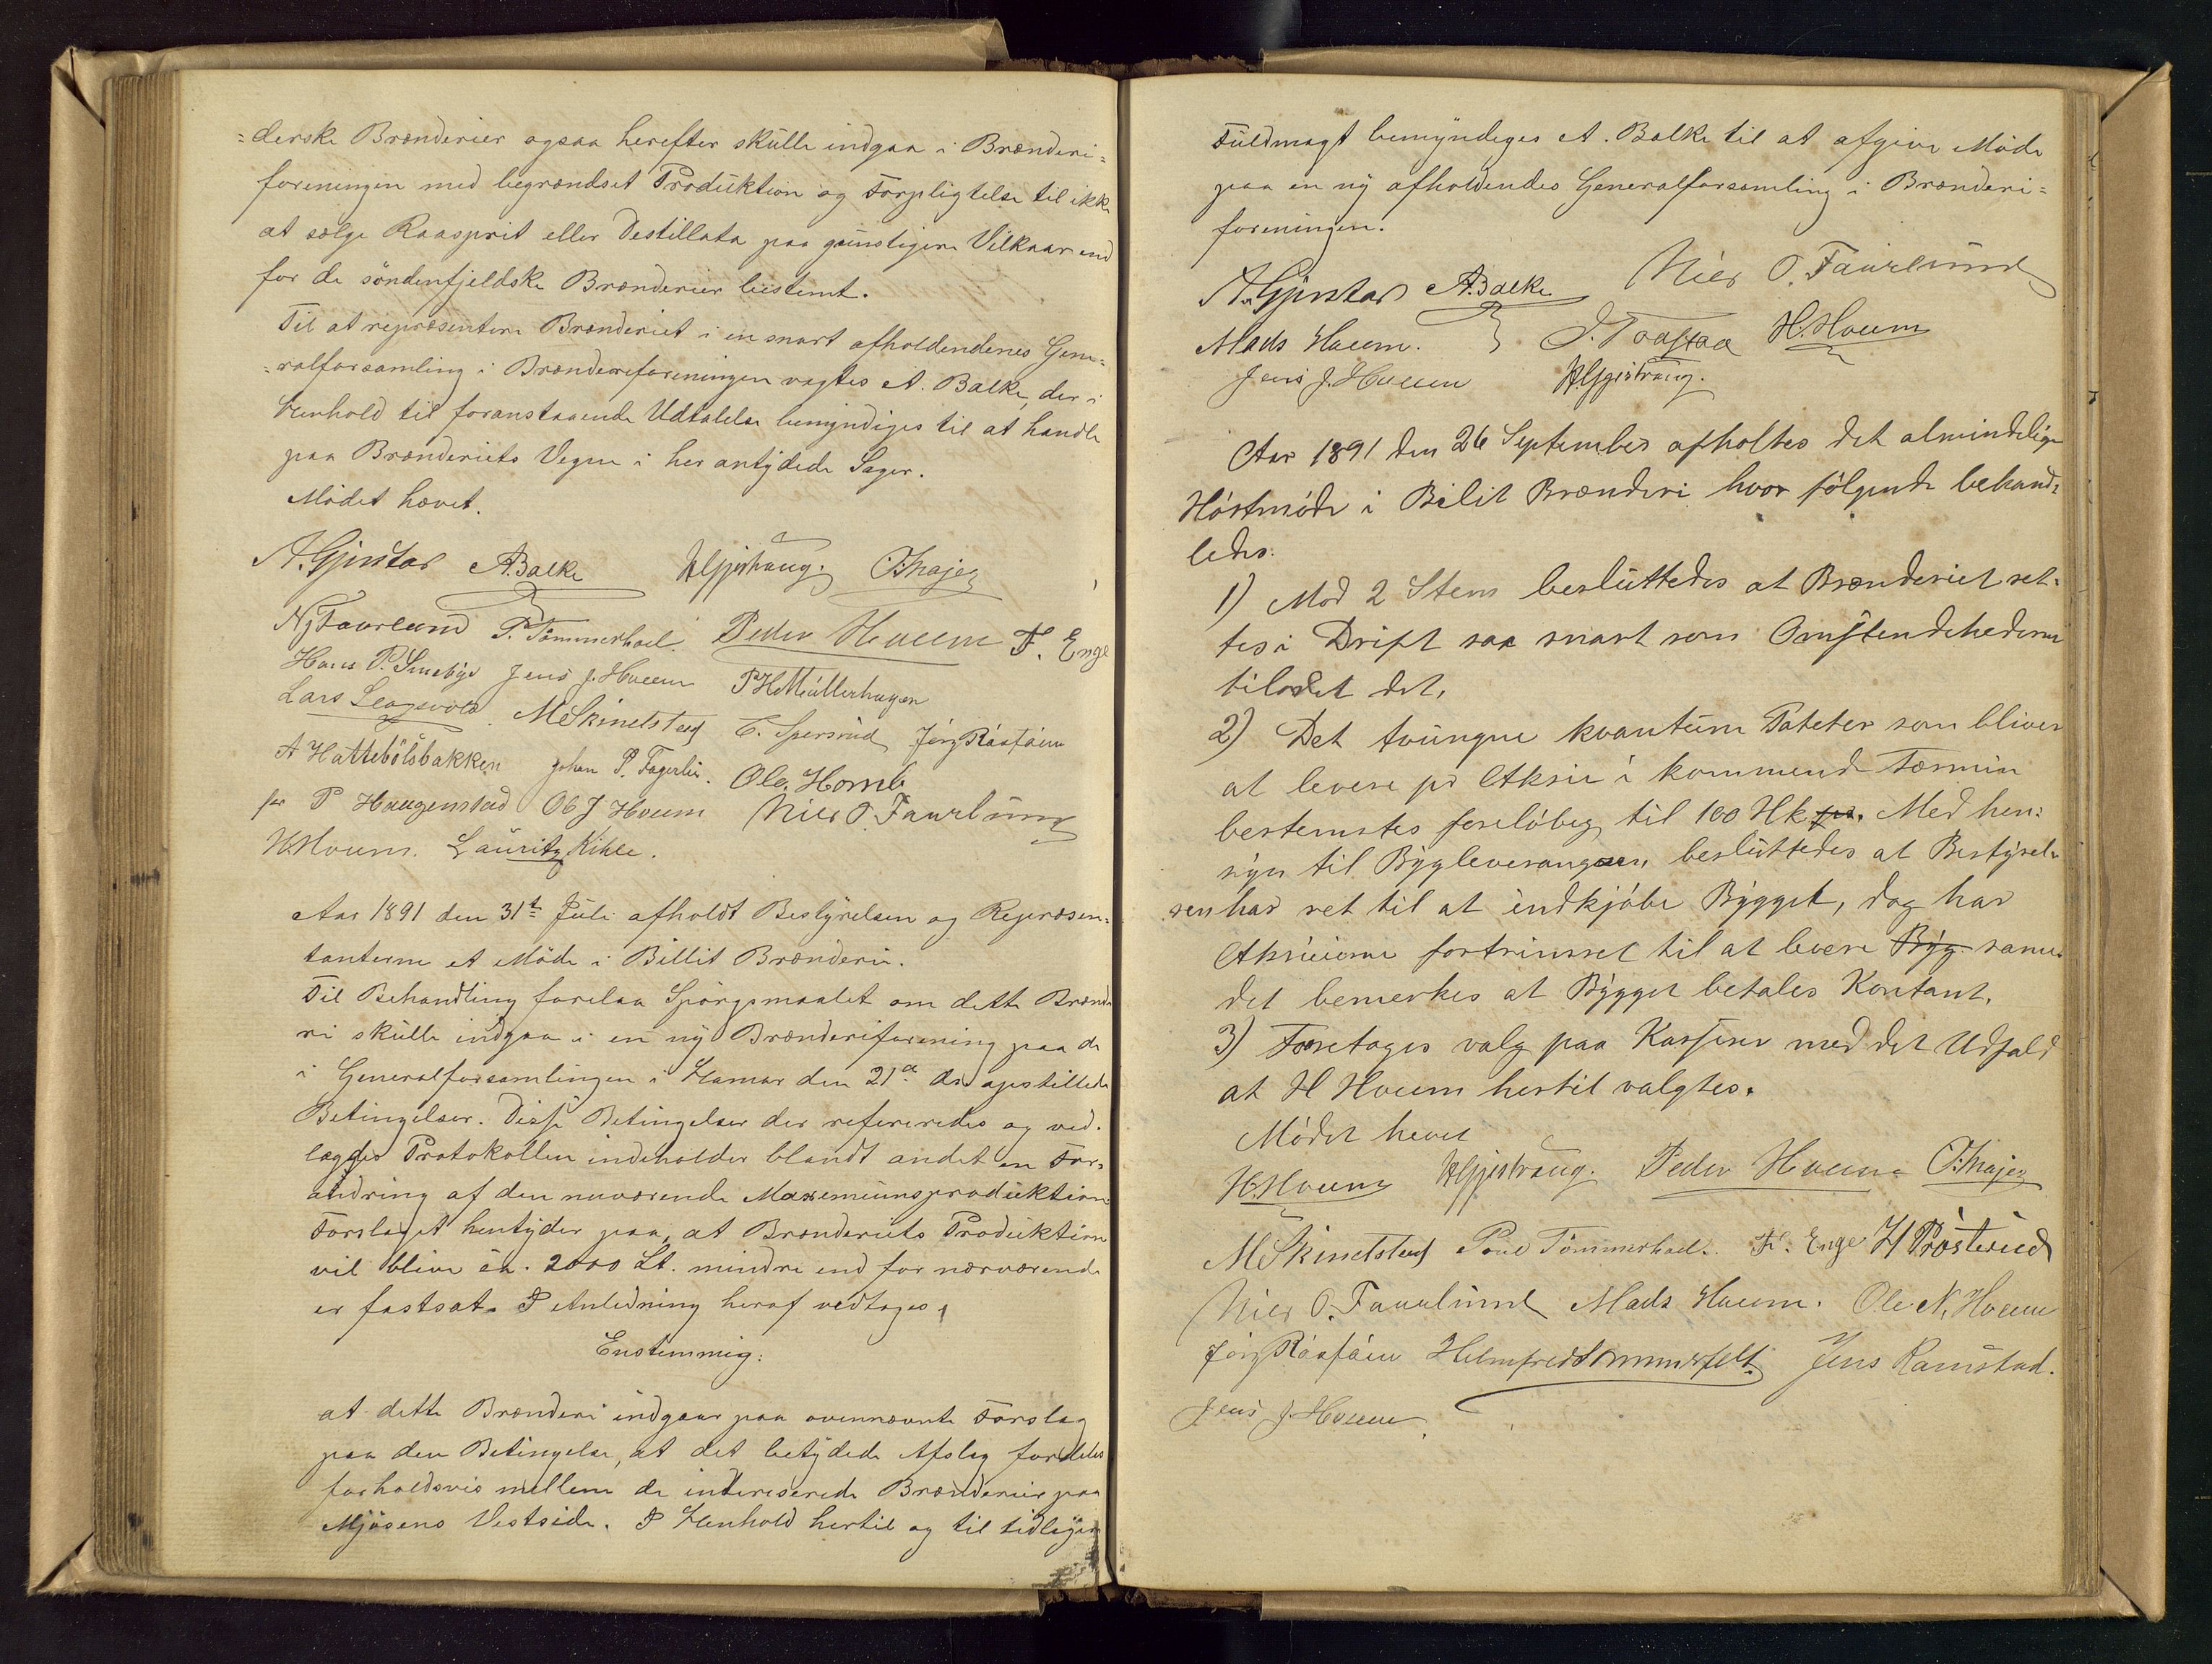 =derske Brænderier ogsaa herefter skulle indgaa i Brænderi=
foreningen med begrændset Produktion og Forpligtelse til ikke
at sælge Raasprit eller Destillata paa gunstigere Vilkaar end
for de söndenfjeldske Brænderier bestemt.
Til at repræsentere Brænderiet i en snart afholdendenes Gene=
=ralforsamling i Brænderiforeningen vagtes A. Balke, der i
Henhold til foranstaaende Udtalelse bemyndiges til at handle
paa Brænderiets Vegne i her antydede Sager.
Mödet hævet.
A. Gjistad A. Balke H. Gjestrang. O. Majer
N J Faurlund P. Tömmerhoel. Peder Hveem F. Enge
Hans P. Smebye Jens J. Hveem P H Müllerhagen
Lars Leagsvold. M Skinelstad C. Spersrud Jörg Raafain
A Hattebölsbakken Johan P. Fagerlie. Ole. Homb
for P Haugenstad Ole J Hveem Niels O. Faurlund
H. Hveem. Lauritz Kihle.
Aar 1891 den 31t Juli afholdt Bestyrelsen og Repræsen=
tanterne et Möde i Billit Brænderi.
Til Behandling forelaa Spörgsmaalet om dette Brænde
ri skulle indgaa i en ny Brænderiforening paa de
i Generalforsamlingen i Hamar den 21de ds opstillede
Betingelser. Disse Betingelser der refereredes og ved.
lægges Protokollen indeholder blandt andet en For=
andring af den nuværende Maxemumsproduktion
Forslaget hentyder paa, at Brænderiets Produktion
vil blive ca. 2000 Lt. mindre end for nærværende
er fastsat. I Anledning heraf vedtoges,
Enstemmig:
at dette Brænderi indgaar paa ovennævnte Forslag
paa den Betingelse, at det betydede Afslag fordeles
forholdsvis mellem de intereserede Brænderier paa
Mjösens Vestside. I Henhold hertil og til tidligere
Fuldmagt bemyndiges A. Balke til at afgive Möde
paa en ny afholdendes Generalforsamling i Brænderi=
foreningen.
A. Gjistad A. Balke Niels O. Faurlund
Mads Hveem. J. Traastaa H. Hveem
Jens J. Hveem H. Gjestrang.
Aar 1891 den 26 September afholtes det almindelige
Höstmöde i Bilit Brænderi hvor fölgende behand=
ledes.
1) Mod 2 Stem besluttedes at Brænderiet set=
tes i Drift saa snart som Omstendehederne
tilodet det.
2) Det tvungne kvantum Poteter som bliver
at levere pr Aksie i kommende Termin
bestemtes forelöbeg til 100 Hk pr. Med hen=
syn til Bygleverangsen, besluttedes at Bestyrel=
sen har ret til at indkjöbe Bygget, dog har
Aksieierne fortrinsret til at levere Byg samme
det bemerkes at Bygget betales Kontant.
3) Foretoges valg paa Kasserer med det Udfald
at H Hveem hertil valgtes.
Mödet hevet
H. Hveem H. Gjestrang. Peder Hveem O. Majer
M Skinelstad Poul Tömmerhoel. F. Enge H Prösterud
Niels O. Faurlund Mads Hveem. Ole N. Hveem
Jörg Raafain Helmfred Ammerfelt. Jens Ramstad.
Jens J. Hveem.